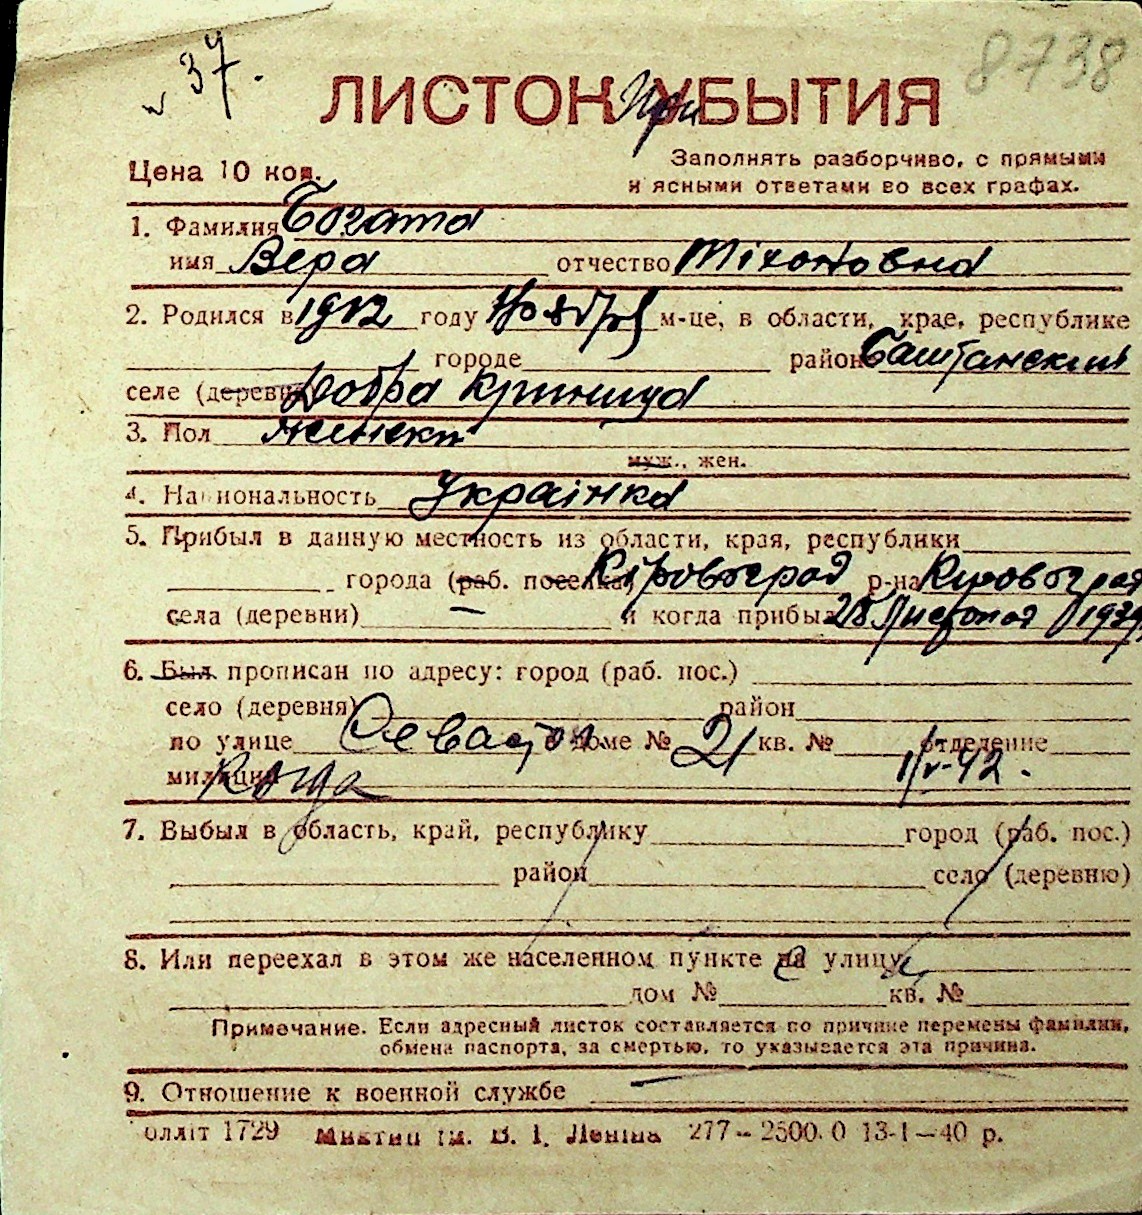 37.
8738
ЛИСТОК При УБЫТИЯ
Цена 10 коп.
Заполнять разборчиво, с прямыми
и ясными ответами во всех графах.
1. Фамилия Богата
имя Вера отчество Тіхоновна
2. Родился в 1912 году Ноября м-це, в области, крае, республике
городе районе Баштанский
селе (деревне) Добра Криница
3. Пол Женски
муж., жен.
4. Национальность Українка
5. Прибыл в данную местность из области, края, республики
города (раб. поселка) Кіровоград р-на Кіровоград
села (деревни) — и когда прибыл 28 Листопад
6. Был прописан по адресу: город (раб. пос.)
село (деревня) район
по улице Севастоп доме № 21 кв. № отделение
милиции 1/V-42.
7. Выбыл в область, край, республику город (раб. пос.)
район село (деревню)
8. Или переехал в этом же населенном пункте на улицу
дом № кв. №
Примечание. Если адресный листок составляется по причине перемены фамилии,
обмена паспорта, за смертью, то указывается эта причина.
9. Отношение к военной службе —
олліт 1729 Миктип ім. В. І. Леніна 277–2500.0 13-I–40 р.